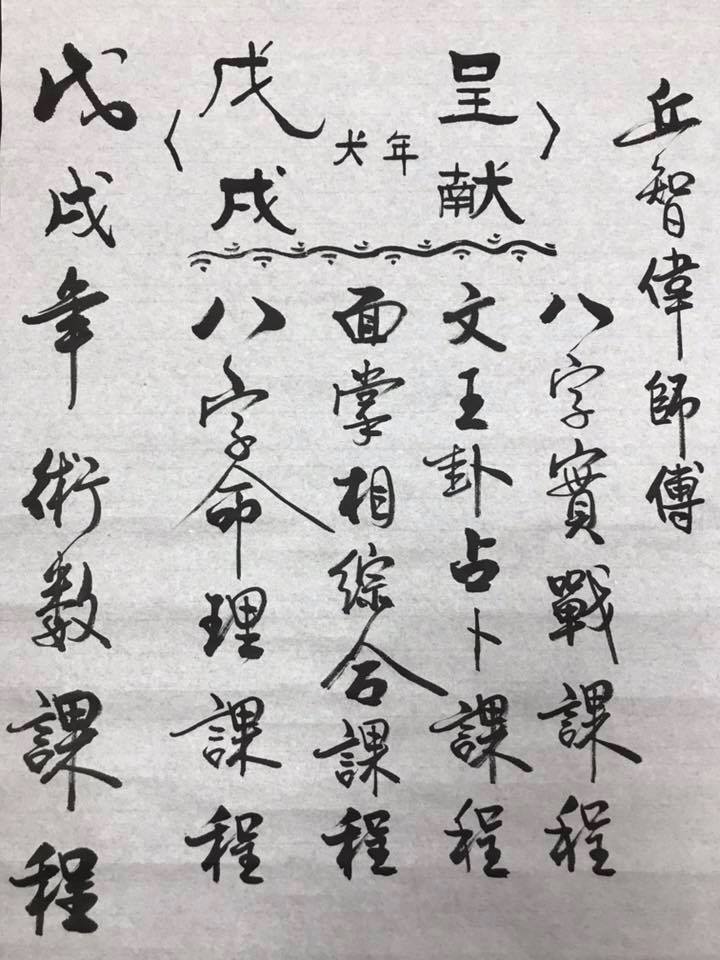 戊戌年術数課程
〈戊戌
犬年
呈献〉
八字命理課程
面掌相綜合課程
文王卦占卜課程
八字實戰課程
丘智偉師傅